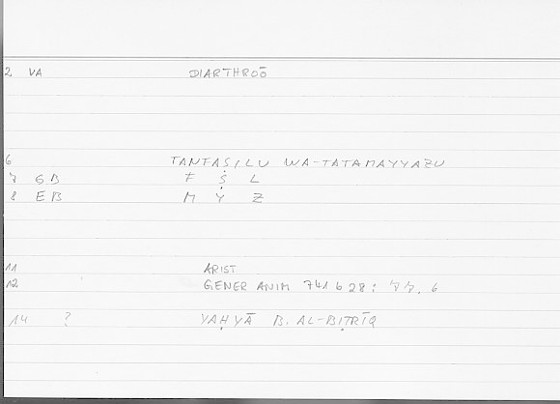 2 VA DIARTHROŌ
6 TANFAṢILU WA-TATAMAYYAZU
7 GB F Ṣ L
8 EB M Y Z
11 ARIST
12 GENER ANIM 741 b 28: 77. 6
14 ? YAḤYĀ B. AL-BIṬRĪQ